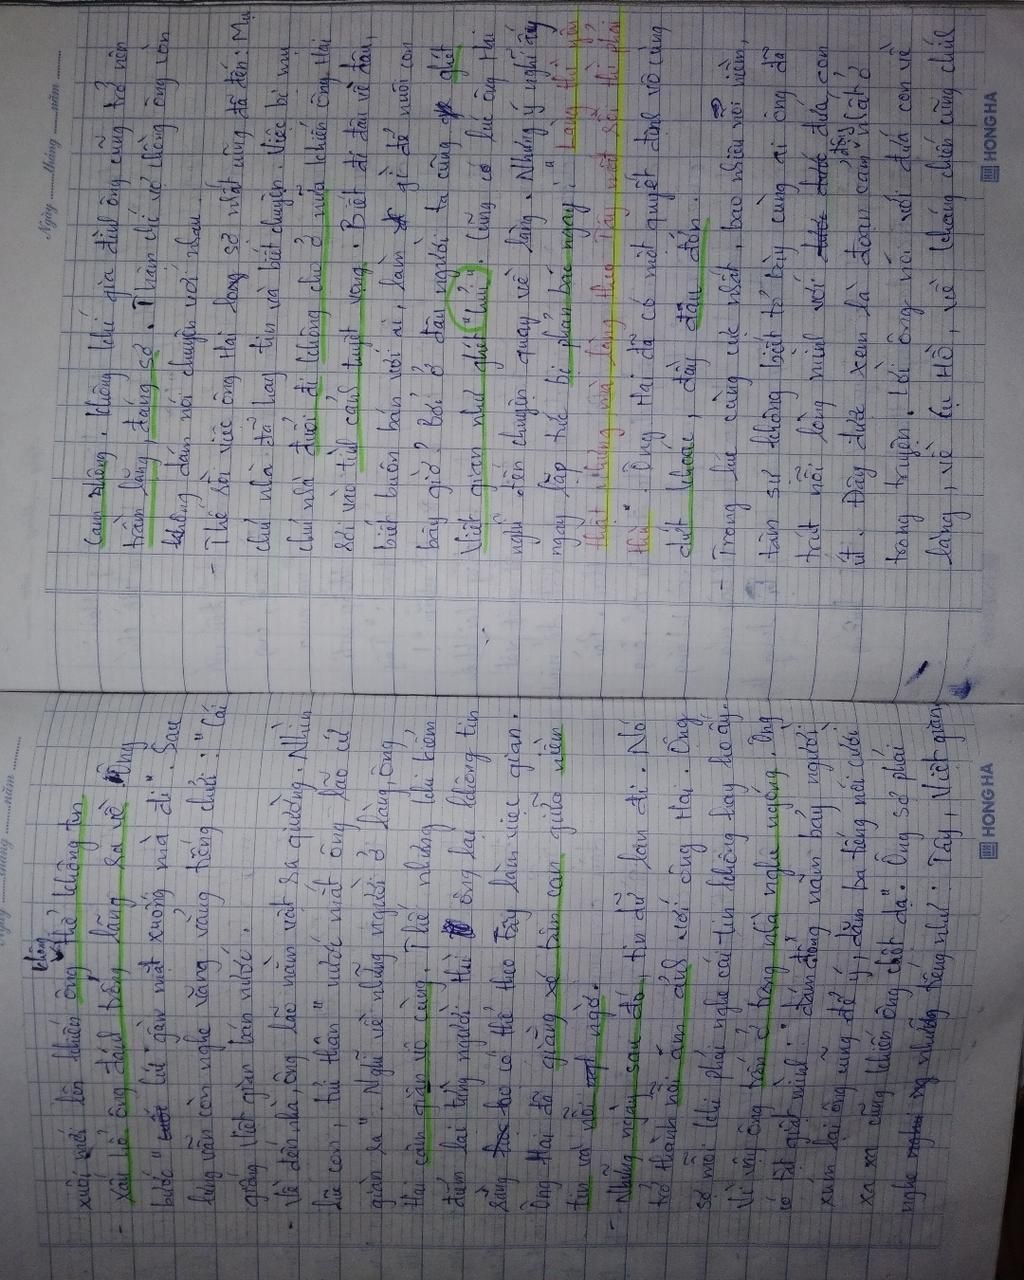 xuôi mới lên khiến ông không thể không tin
- Xấu hổ, ông đánh trống lãng ra về. Ông
bước "cúi gằm mặt xuống mà đi". Sau
lưng vẫn còn nghe văng vẳng tiếng chửi: "Cái
giống Việt gian bán nước.
- Về đến nhà, ông lão nằm vật ra giường. Nhìn
lũ con, tủi thân "nước mắt ông lão cứ
giàn ra". Nghĩ về những người ở làng, ông
Hai căm giận vô cùng. Thế nhưng khi kiểm
điểm lại từng người thì ông lại không tin
rằng họ có thể theo Tây làm việc gian.
Ông Hai đã giằng xé băn can giữa niềm
tin và nỗi ngờ.
- Những ngày sau đó, tin dữ lan đi. Nó
trở thành nỗi ám ảnh với ông Hai. Ông
sợ mỗi khi phải nghe cái tin không hay ho ấy.
Vì vậy ông trốn ở trong nhà nghe ngóng. Ông
có tật giật mình: "đám đông năm bảy người
xúm lại ông cũng để ý, dăm ba tiếng nói cười
xa xa cũng khiến ông chột dạ". Ông sợ phải
nghe những tiếng như: Tây, Việt gian,
Ngày ......... tháng ......... năm .........
Cam nhông. Không khí gia đình ông cũng trở nên
trầm lắng, đáng sợ. Thậm chí vợ chồng ông còn
không dám nói chuyện với nhau.
- Thế rồi việc ông Hai lo sợ nhất cũng đã đến: Mụ
chủ nhà đã hay tin và biết chuyện. Việc bị mụ
chủ nhà đuổi đi không cho ở nữa khiến ông Hai
rơi vào tình cảnh tuyệt vọng. Biết đi đâu về đâu,
biết buôn bán với ai, làm gì để nuôi con
bây giờ? Bởi ở đâu người ta cũng ghét
Việt gian như ghét "hủi". Cũng có lúc ông Hai
nghĩ đến chuyện quay về làng. Nhưng ý nghĩ ấy
ngay lập tức bị phản bác ngay: "Làng thì yêu
thật nhưng mà làng theo Tây mất rồi thì phải
thù". Ông Hai đã có một quyết định vô cùng
dứt khoát, đầy đau đớn.
- Trong lúc cùng cực nhất, bao nhiêu nỗi niềm,
tâm sự không biết tỏ bày cùng ai ông đã
trút nỗi lòng mình với đứa con
út. Đây được xem là đoạn cảm động nhất ở
trong truyện. Khi ông nói với đứa con về
làng, về cụ Hồ, về kháng chiến cũng chính
HONG HA
HONG HA